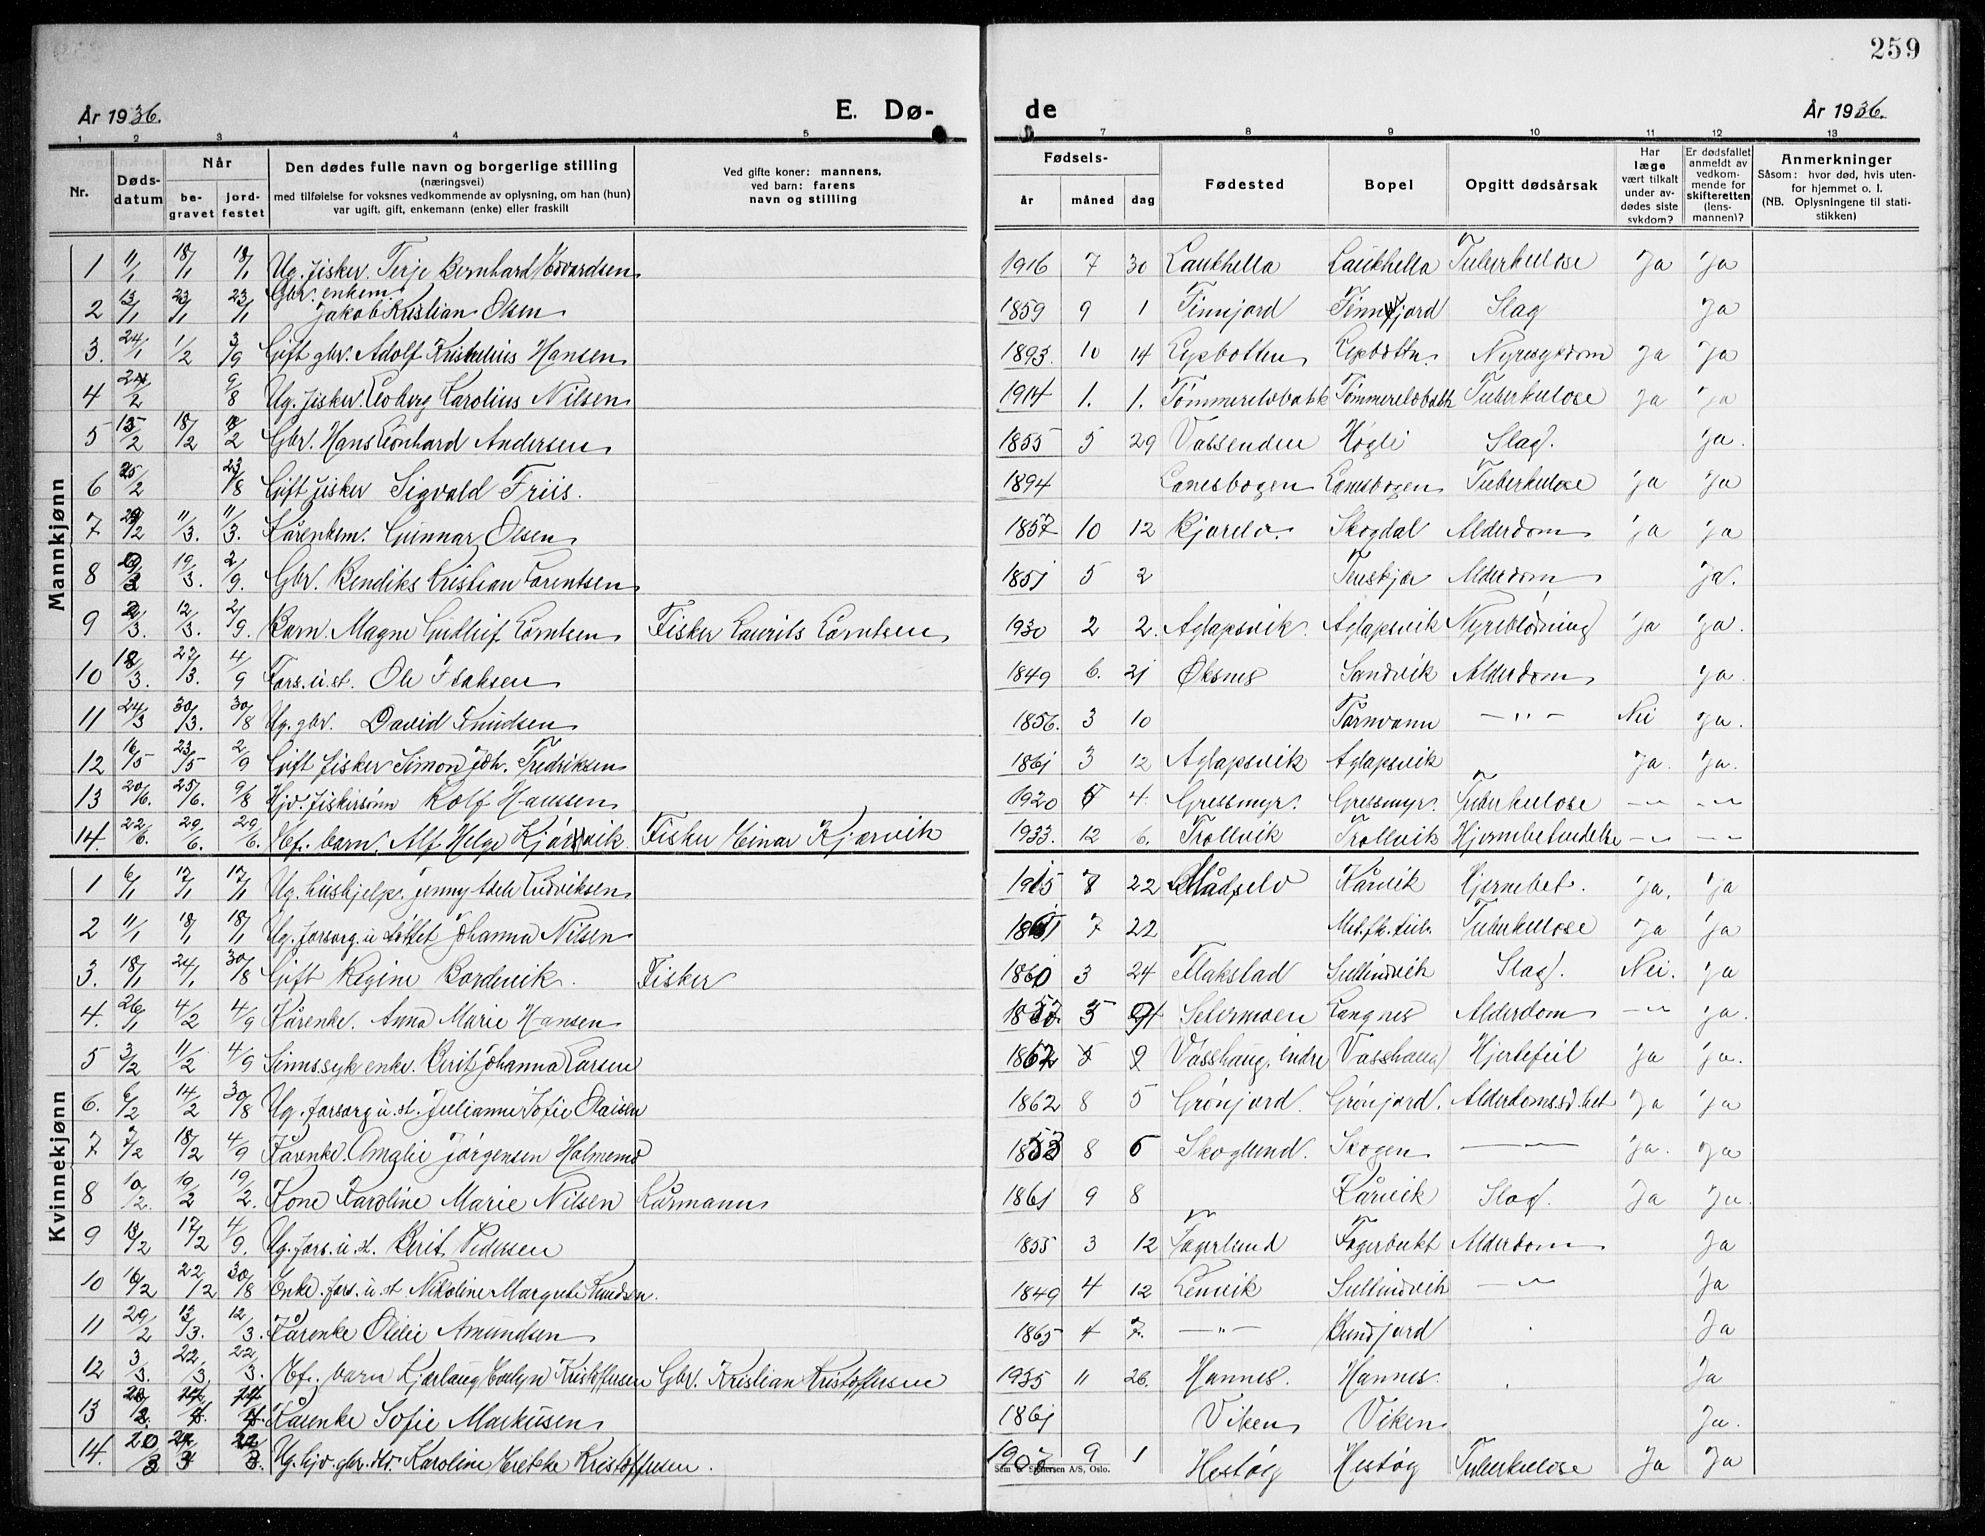 259
År 1936.
E. Dø-
de
År 1936.
1 2 3 4 5 7 8 9 10 11 12 13
Nr.
Døds-
datum
Når
be-
gravet
jord-
festet
Den dødes fulle navn og borgerlige stilling
(næringsvei)
med tilføielse for voksnes vedkommende av oplysning, om han (hun)
var ugift, gift, enkemann (enke) eller fraskilt
Ved gifte koner: mannens,
ved barn: farens
navn og stilling
Fødsels-
år måned dag
Fødested
Bopel
Opgitt dødsårsak
Har
læge
vært tilkalt
under av-
dødes siste
sykdom?
Er dødsfallet
anmeldt av
vedkom-
mende for
skifteretten
(lens-
mannen)?
Anmerkninger
Såsom: hvor død, hvis uten-
for hjemmet o. l.
(NB. Oplysningene til stati-
stikken)
Mannkjønn
1 11/1 18/1 18/1 Ug. fisker. Terje Bernhard Edvardsen 1916 7 30 Laukhella Laukhella Tuberkulose Ja Ja
2 13/1 23/1 23/1 Gbr. enkem. Jakob Kristian Olsen 1859 9 1 Finnjord Finnfjord Slag Ja
3. 24/1 1/2 3/9 Gift gbr. Adolf Hansen 1893. 10 14 Nyresykdom Ja Ja
4 24/2 9/8 Ug. fisker. Karolius Nilsen 1914 1. 1. Tuberkulose Ja Ja
5 15/2 18/2 18/2 Gbr. Hans Leonhard Andersen 1855 5 29 Vassenden Høgli Slag. Ja.
6 25/2 23/8 Gift fisker Sigvald Friis. 1894 Lanesbogen Lanesbogen Tuberkulose Ja Ja
7 29/2 11/3. 11/3. Kårenkem. Gunnar Olsen 1857 10 12 Skogdal Alderdom Ja Ja
8 19/3. 2/9. Gbr. Bendiks Kristian Larentsen 1851 5 2 Tenskjær Alderdom Ja.
9 2/3. 12/3. 2/9. Barn. Magne Lorntsen Fisker Laurits Lorntsen 1930 2 2. Aglapsvik. Aglapsvik Nyreblødning Ja Ja.
10 18/3. 27/3. 4/9 Fors. u. st. Ole Isaksen 1849 6. 21 Øksnes Sandvik Alderdom Ja.
11 24/3 30/3. 30/8 Ug. gbr. David Knudsen 1856. 3 10 Tårnvann —"— Nei Ja.
12 16/5 23/5 2/9 Gift fisker Simon Joh. Fredriksen 1861 3 12 Aglapsvik Aglapsvik Ja. Ja.
13 20/6. 25/6. 9/8 Hjv. fiskersønn Rolf Hanssen 1920 4. Gressmyr. Gressmyr. Tuberkulose —"— —"—
14. 22/6. 29/6. 29/6. Ef. barn. Alf Helge Kjærvik Fisker Einar Kjærvik 1933. 12 6. Trollvik Trollvik Hjernebetendelse —"— —"—
Kvinnekjønn
1 6/1 17/1 17/1 Ug. hushjelp. Jenny Adele Ludviksen 1915 22 Målselv Kårvik Hjernebet. Ja. Ja
2 11/1 18/1 18/1 Ug. forsorg. u. støttet Johanna Nilsen 7 22 Tuberkulose Ja Ja
3. 18/1 24/1 30/8 Gift Regine Bordevik. Fisker 1860 3 24 Flakstad Sultindvik Slag. Nei. Ja
4. 26/1 4/2 4/9 Kårenke. Anna Marie Hansen 5 Setermoen Langnes Alderdom —"— Ja.
5 3/2 11/2 4/9 Sinnssyk enke. Berit Johanna Larsen 1862 5 9 Vasshaug, indre Vasshaug Hjertefeil Ja Ja.
6. 6/2 14/2 30/8 Ug. forsorg. u. st. Julianne Sofie Olaisen 1862 8 5 Grønjord. Grønjord. Ja Ja
7 7/2 18/2 4/9 Kårenke. Amalie Jørgensen Holmemo 1853 8 6 Skoglund. Skogen —"— Ja. Ja
8 10/2. 19/2 19/2. Kone Karoline Marie Nilsen Kårmann 1861 9 8 Kårvik Slag. Ja Ja.
9 13/2 17/2 4/9. Ug. fors. u. st. Berit Pedersen 1855 3 12 Fagerlund Fagerbukt Alderdom Ja
10 16/2 22/2 30/8 Enke. fors. u. st Nikoline Margrete Knudsen. 1849 4 12 Lenvik Sultindvik —"— Ja
11 29/2 13/3. 12/3. Kårenke Oldie Amundsen 1865 4 7. —"— Bundjord Ja
12 3/3. 22/3 22/3. Ef. barn Kjærlaug Evelyn Kristoffersen Gbr. Kristian Kristoffersen 1935 11 26. Hannes. Hannes. Ja
13 Kårenke Sofie Markusen 1861 Viken Viken Ja.
14. 20/3 Ug. hjv. gbr. dtr. Karoline Erekke Kristoffersen. 1907 9 1 Hestøy Hestøy Tuberkulose Ja Ja
Sem & Stenersen A/S, Oslo.